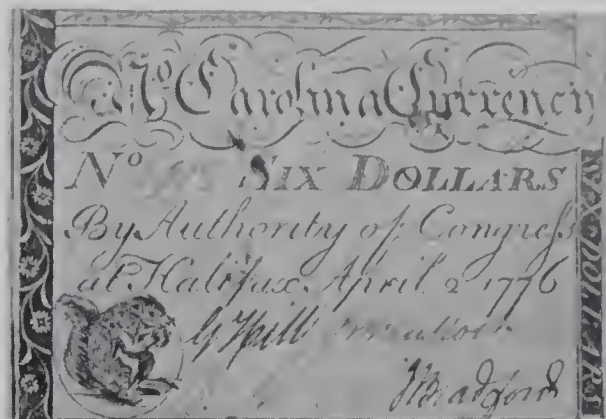 No Carolina Currency
No SIX DOLLARS
By Authority of Congress
at Halifax April 2 1776
J Bradford
DOLLARS